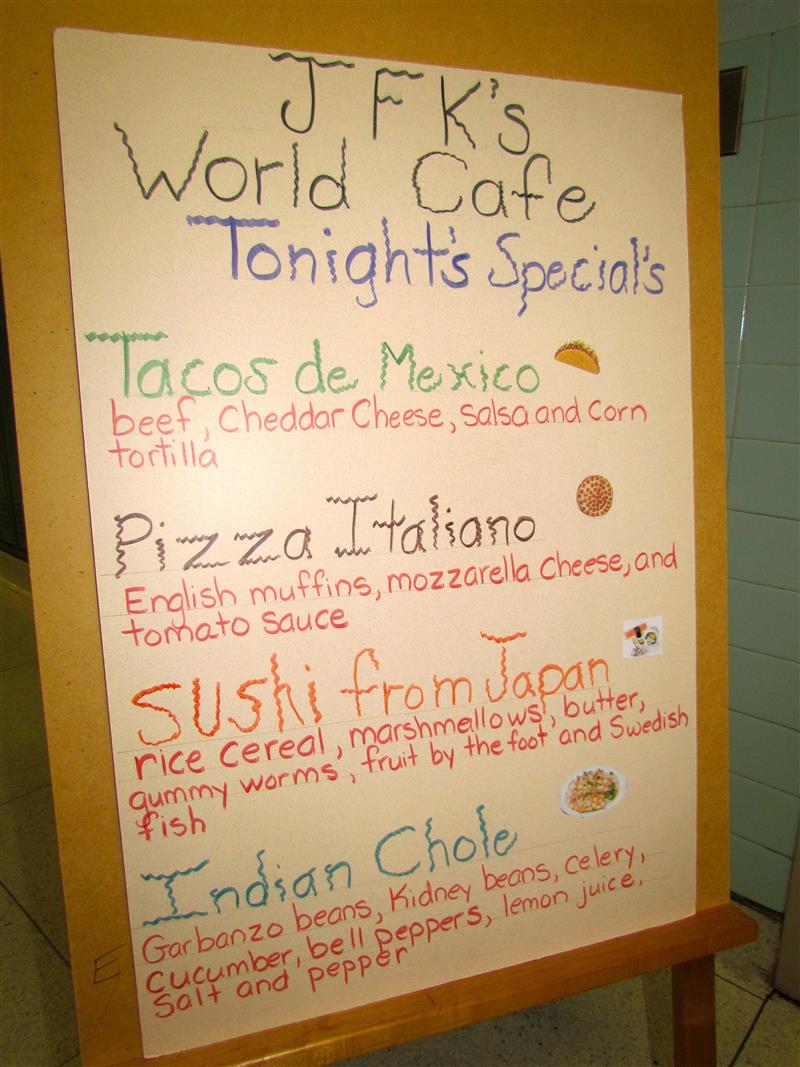 JFK's
World Cafe
Tonight's Special's
Tacos de Mexico
beef, Cheddar Cheese, Salsa and Corn
tortilla
Pizza Italiano
English muffins, mozzarella Cheese, and
tomato sauce
Sushi from Japan
rice cereal, marshmellows, butter,
gummy worms, fruit by the foot and Swedish
fish
Indian Chole
Garbanzo beans, Kidney beans, celery,
cucumber, bell peppers, lemon juice,
Salt and pepper
E